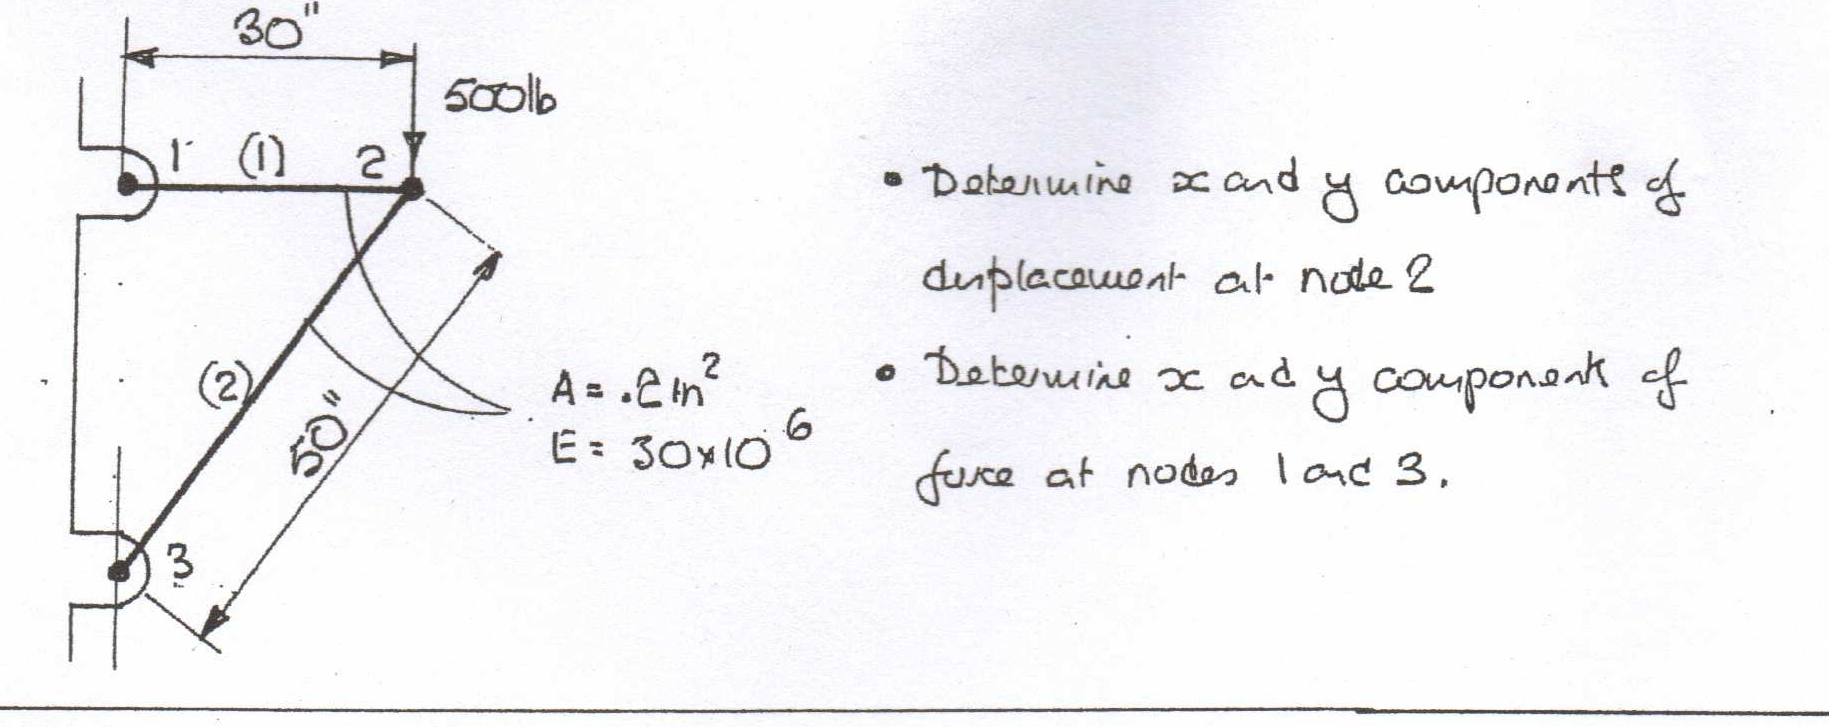 30"
500lb
1 (1) 2
• Determine x and y components of
displacement at node 2
(2)
50"
A = .2 in²
E = 30x10⁶
• Determine x ad y component of
force at nodes 1 and 3.
3